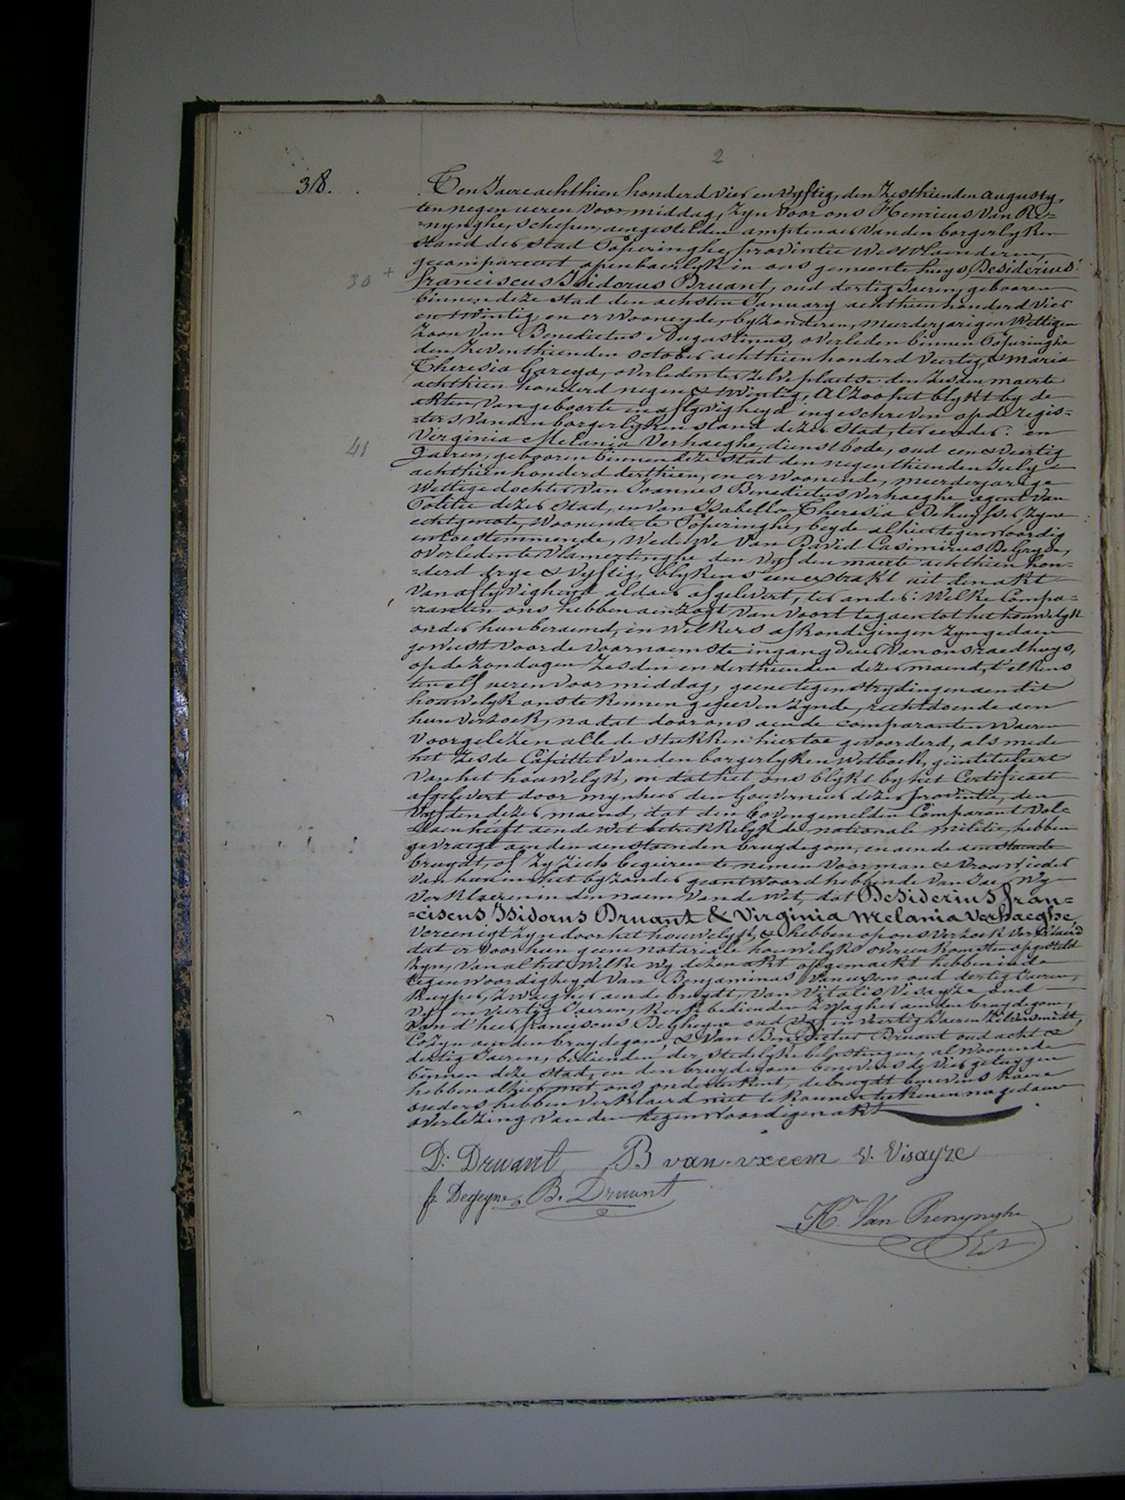 2
38.
Ten Jaere achthien honderd vier en vyftig, den Zesthienden augusty,
ten negen ueren voormiddag, Zyn voor ons Henricus Van Re-
-nynghe, Schepen, aengestelden amptenaer van den borgerlyken
stand der Stad Poperinghe, provintie Westvlaenderen,
gecompareert openbaerlyk in ons gemeente huys Desiderius
30 +
franciscus Isidorus Druant, oud dertig Jaeren, geboren
binnen deze stad den achsten January achthien honderd vier
en twintig, en er Woonende, byzonderen, meerderjarigen Wettigen
Zoon van Benedictus Augustinus, overleden binnen Poperinghe
den Zeventhienden october achthien honderd veertig, & Maria
Theresia, overleden ter Zelve plaetse den Zesden maerte
achthien honderd negen & twintig, alzoo het blykt by de
akten van geboorte en aflyvigheyd ingeschreven op de regis-
-ters van den borgerlyken stand dezer Stad, ter eender: en
41
Virginia Melania Verhaeghe, dienstbode, oud een & veertig
Jaeren, geboren binnen deze Stad den negenthienden July
achthien honderd derthien, en er woonende, meerderjarige
Wettige dochter van Joannes Benedictus Verhaeghe agent van
Politie dezer Stad, en van Isabella Theresia Zyne
echtgenote, Woonende te Poperinghe, beyde alhier tegenwoordig
en toestemmende, Weduwe van David Casimirus
overleden te Vlamertinghe den vyfden maerte achthien hon-
-derd drye & vyftig, blykens een extrakt uit den akt
van aflyvigheyd aldaer afgelevert, ter ander: Welke Compa-
-ranten ons hebben aenzogt van voort te gaen tot het houwelyk
onder hun beraemd, en welkers afkondigingen zyn gedaen
geweest voor de voornaemste ingang deur van ons raedhuys,
op de zondagen Zesden en derthienden dezer maend, t'elkens
ten elf ueren voormiddag, geene tegenstrydingen aen dit
houwelyk ons te kennen gegeven zynde, rechtdoende aen
hun verzoek, na dat door ons aen de comparanten waeren
Voorgelezen alle de stukken hiertoe gevoorderd, als mede
het zesde Capittel van den borgerlyken Wetboek, geïntituleert
van het houwelyk, en dat het ons blykt by het Certificaet
afgelevert door mynheer den Gouverneur dezer provintie, den
vyfden dezer maend, dat den bovengemelden Comparant vol-
-daen heeft aen de Wet betrekkelyk de nationale militie, hebben
gevraegt aen den aenstaenden bruydegom, en aen de aenstaende
bruydt, of zy zich begeiren te nemen voor man & vrouw, ieder
van hun in het byzonder geantwoord hebbende van Jae, Wy
verklaeren in den naem van de Wet, dat Desiderius fran-
-ciscus Isidorus Druant & Virginia Melania Verhaeghe
vereenigt zyn door het houwelyk, & hebben op ons verzoek verklaerd
dat er voor hun geene notariale houwelyks overeenkomsten opgesteld
zyn, van al het Welke wy dezen akt opgemaekt hebben in de
tegenwoordigheyd van Benjaminus oud dertig Jaeren,
Kuyper, zwaegher aen de bruydt, van Vitalis Visayze oud
vyf en veertig Jaeren, Kerkbedienden zwagher aen den bruydegom,
van d'heer franciscus Deghyne oud vyf en veertig Jaeren Zilversmidt,
Cosyn aen den bruydegom, & van Benedictus Druant oud acht &
dertig Jaeren, bedienden der Stedelyke belastingen, al woonende
binnen deze Stad, en den bruydegom benevens de vier getuygen
hebben alhier met ons onderteekent, de bruydt benevens hare
ouders hebben verklaerd niet te kunnen teekenen na gedaene
overlezing van den tegenwoordigen akt
D: Druant B van-uxeem V. Visayze
fr. Degheyne B. Druant
H.r Van Renynghe